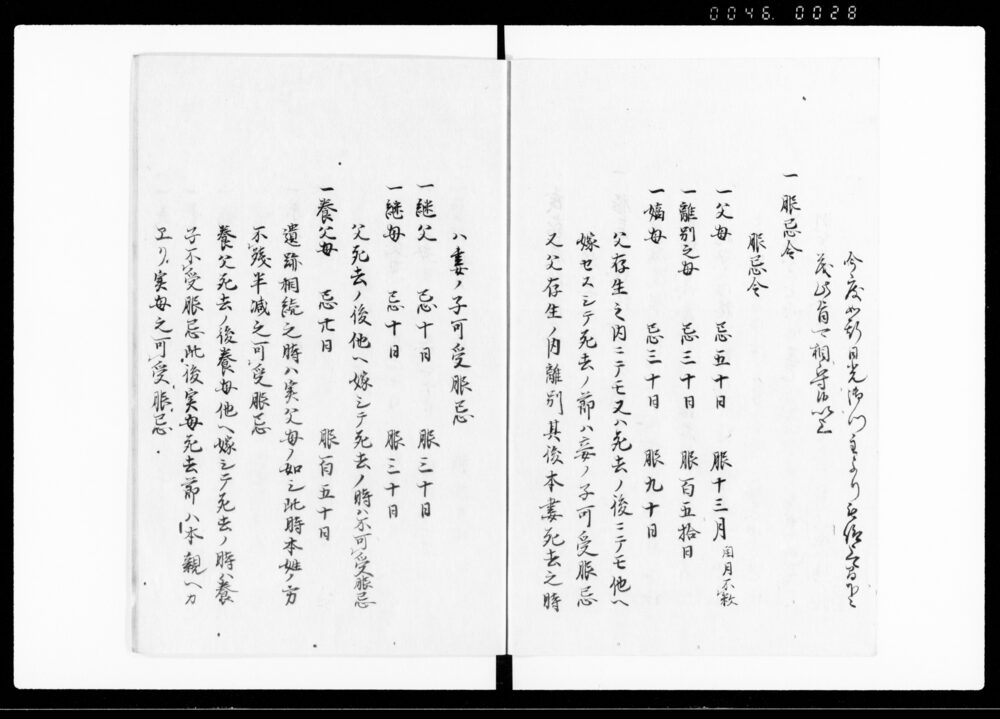 0046. 0028
今度
一 服忌令
服忌令
一父母 忌五十日 服十三月 閏月不数
一離別之母 忌三十日 服百五拾日
一嫡母 忌三十日 服九十日
父存生之内ニテモ又ハ死去ノ後ニテモ他ヘ
嫁セスシテ死去ノ節ハ妾ノ子可受服忌
又父存生ノ内離別其後本妻死去之時
ハ妻ノ子可受服忌
一継父 忌十日 服三十日
一継母 忌十日 服三十日
父死去ノ後他ヘ嫁シテ死去ノ時ハ不可受服忌
一養父母 忌卅日 服百五十日
遺跡相続之時ハ実父母ノ如シ此時本姓ノ方
不残半減之可受服忌
養父死去ノ後養母他ヘ嫁シテ死去ノ時ハ養
子不受服忌此後実母死去節ハ本親ヘカ
エリ実母之可受服忌